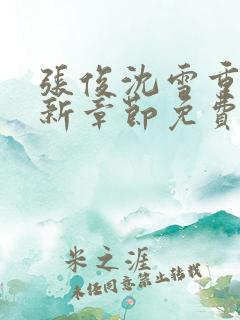 張俊沈雪重
新章節免費
米之涯
未經同意禁止轉載